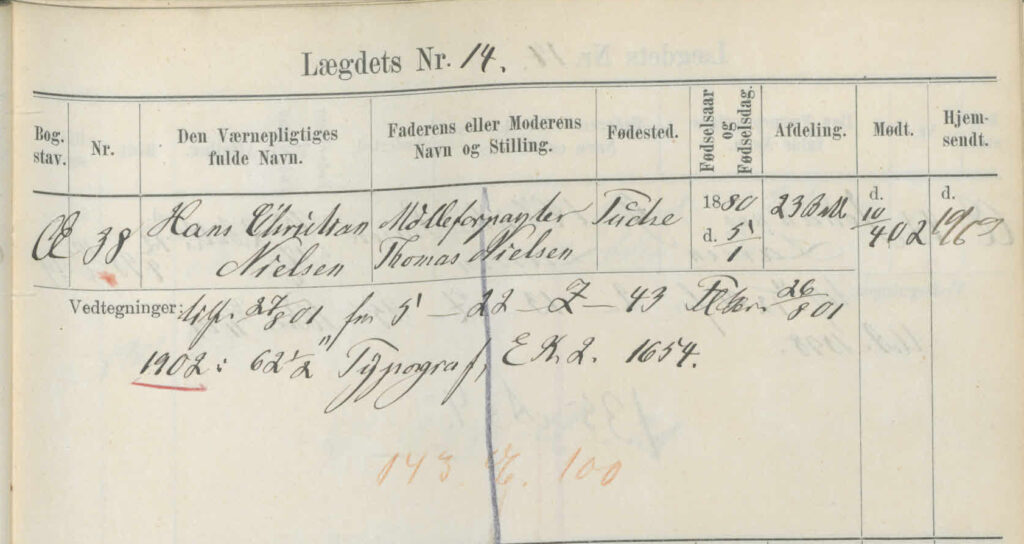 Lægdets Nr. 14.
Bog. stav. Nr. Den Værnepligtiges fulde Navn. Faderens eller Moderens Navn og Stilling. Fødested. Fødselsaar og Fødselsdag. Afdeling. Mødt. Hjem- sendt.
Æ 38 Hans Christian Nielsen Mølleforpagter Thomas Nielsen Tudse 1880 d. 5/1 23 Bat d. 10/4 02 d.
Vedtegninger: tilg. 27/8 01 fra 5 - 22 - Z - 43 26/8 01
1902: 62 1/2" Typograf, E K. 2. 1654.
143 100